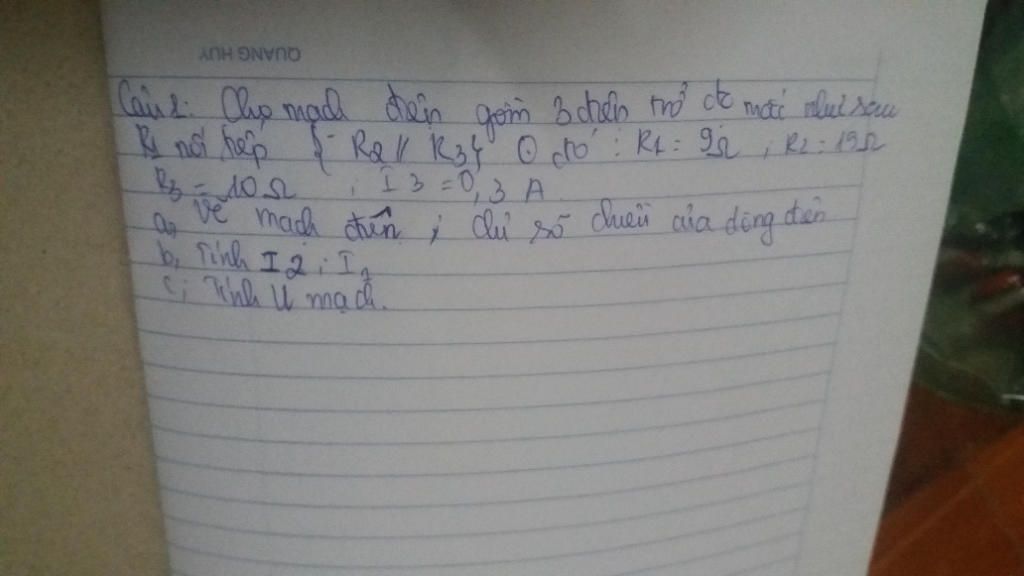 QUANG HUY
Câu 2: Cho mạch điện gồm 3 điện trở đc mắc như sau
R1 nối tiếp { R2 // R3 } ở đó : R1 = 9Ω ; R2 = 15Ω
R3 = 10Ω ; I3 = 0,3 A
a, Vẽ mạch điện ; chỉ số chiều của dòng điện
b, Tính I2 ; I1
c, Tính U mạch.